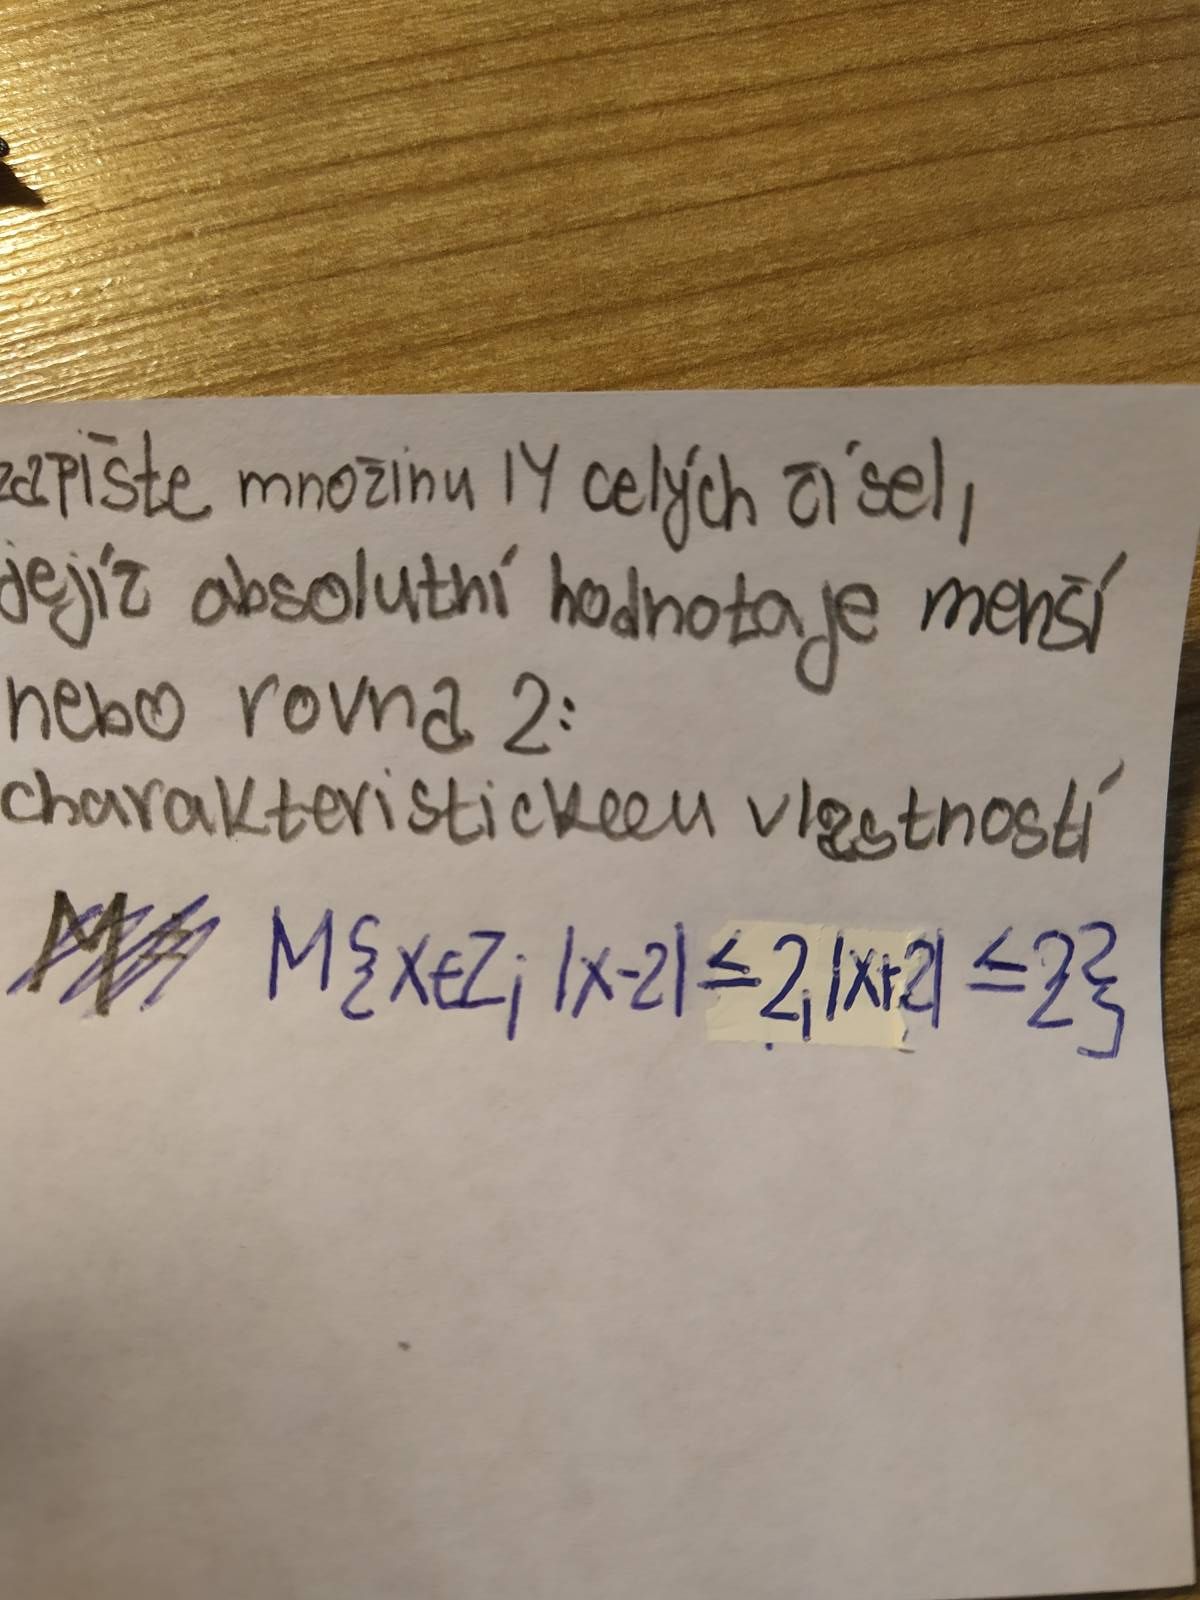 zapište množinu M celých čísel,
jejíž absolutní hodnota je menší
nebo rovna 2:
charakteristickeeu vlastností
M{x∈Z; |x-2| ≤ 2, |x+2| ≤ 2}